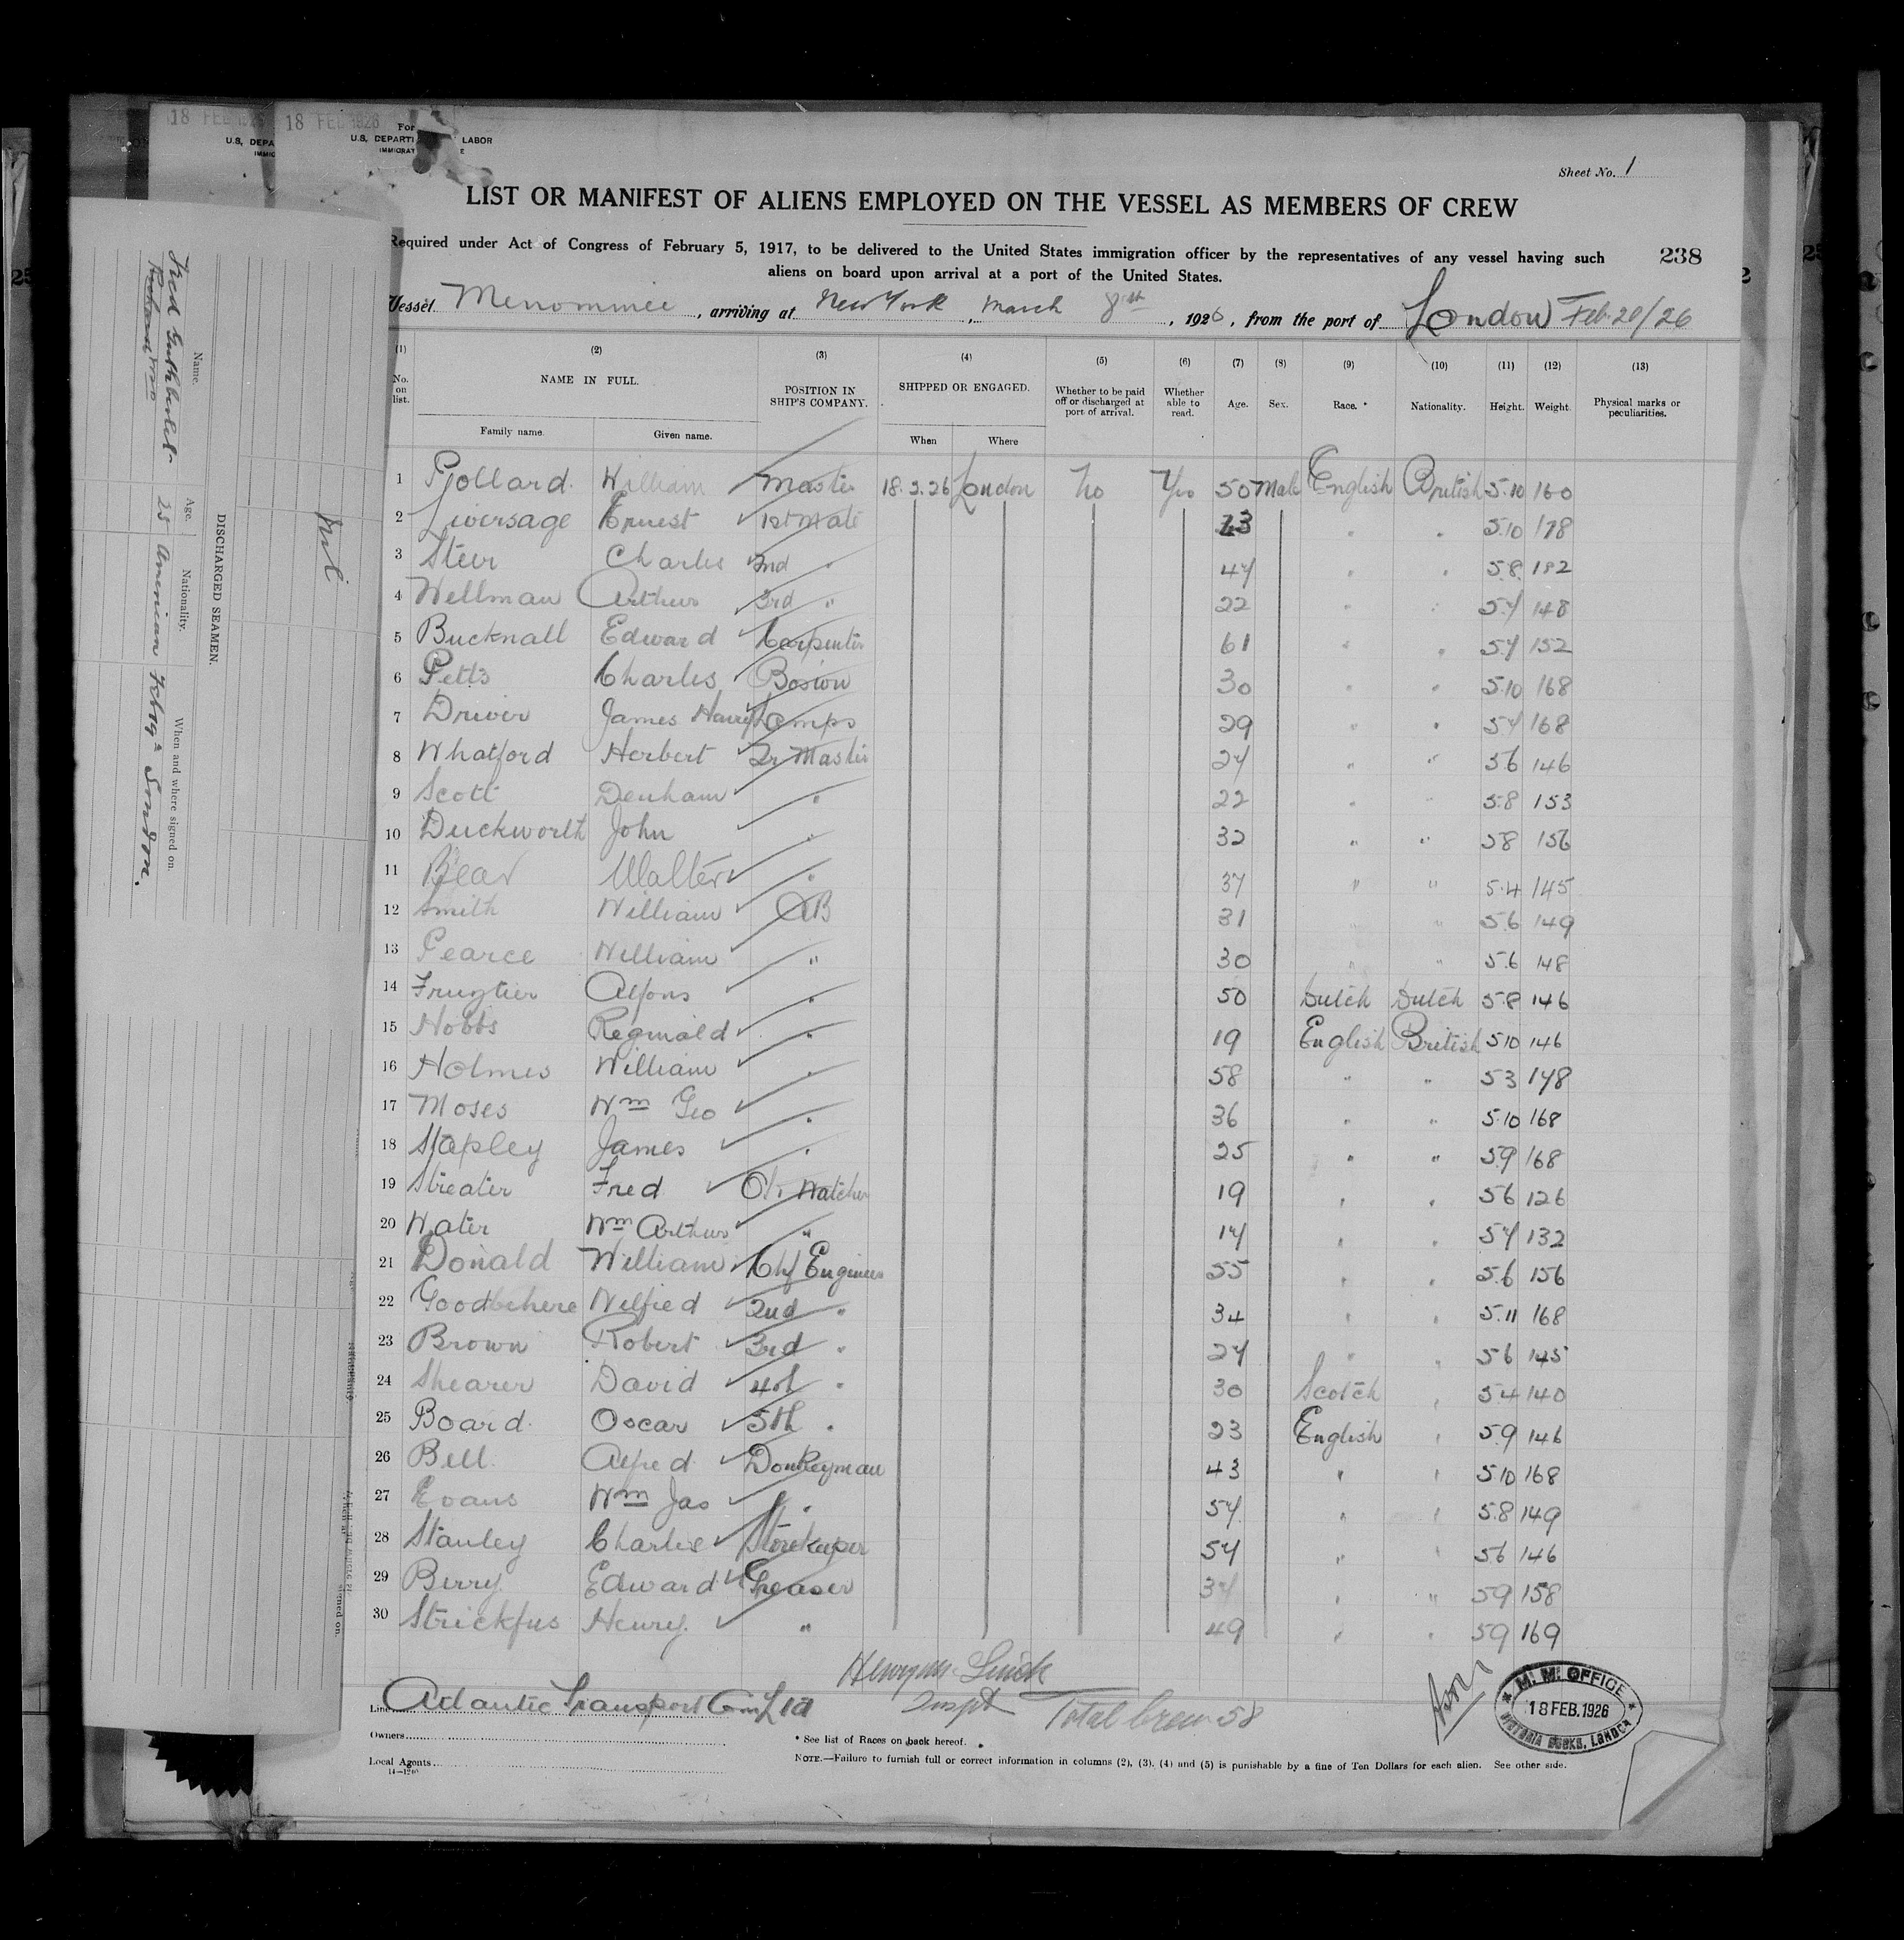 18 FEB 1926 18 FEB 1926
For
U.S. DEPA U.S. DEPARTI LABOR
IMMIG IMMIGRAT E
Sheet No. 1
LIST OR MANIFEST OF ALIENS EMPLOYED ON THE VESSEL AS MEMBERS OF CREW
Required under Act of Congress of February 5, 1917, to be delivered to the United States immigration officer by the representatives of any vessel having such
aliens on board upon arrival at a port of the United States.
238
Vessel Menominee, arriving at New York, March 8th, 1926, from the port of London Feb. 20/26
(1) (2) (3) (4) (5) (6) (7) (8) (9) (10) (11) (12) (13)
No. on list. NAME IN FULL. POSITION IN SHIP'S COMPANY. SHIPPED OR ENGAGED. Whether to be paid off or discharged at port of arrival. Whether able to read. Age. Sex. Race. * Nationality. Height. Weight. Physical marks or peculiarities.
Family name. Given name. When Where
1 Pollard. William Master 18.2.26 London No Yes 50 Male English British 5.10 160
2 Liversage Ernest 1st Mate 23 " " 5.10 178
3 Steer Charles 2nd " 47 " " 5.8 182
4 Wellman Arthur 3rd " 22 " " 5.7 148
5 Bucknall Edward Carpenter 61 " " 5.7 152
6 Petts Charles Bosion 30 " " 5.10 168
7 Driver James Henry Lamps 29 " " 5.7 168
8 Whatford Herbert Qr Master 27 " " 5.6 146
9 Scott Denham " 22 " " 5.8 153
10 Duckworth John " 32 " " 5.8 156
11 Bear Walter " 37 " " 5.4 145
12 Smith William AB 31 " " 5.6 149
13 Pearce William " 30 " " 5.6 148
14 Alfons " 50 Dutch Dutch 5.8 146
15 Hobbs Reginald " 19 English British 5.10 146
16 Holmes William " 58 " " 5.3 148
17 Moses Wm Geo " 36 " " 5.10 168
18 Stapley James " 25 " " 5.9 168
19 Streater Fred 19 " " 5.6 126
20 Water Wm Arthur " 17 " " 5.7 132
21 Donald William Chf Engineer 55 " " 5.6 156
22 Goodbehere Wilfred 2nd " 34 " " 5.11 168
23 Brown Robert 3rd " 27 " " 5.6 145
24 Shearer David 4th " 30 Scotch " 5.4 140
25 Board Oscar 5th " 23 English " 5.9 146
26 Bell Alfred Donkeyman 43 " " 5.10 168
27 Evans Wm Jas " 57 " " 5.8 149
28 Stanley Charles Storekeeper 57 " " 5.6 146
29 Berry Edward Greaser 37 " " 5.9 158
30 Strickfus Henry " 49 " " 5.9 169
Inspt Total Crew 58
Line Atlantic Transport Com Ltd
Owners
Local Agents
14—1240
* See list of Races on back hereof.
NOTE.—Failure to furnish full or correct information in columns (2), (3), (4) and (5) is punishable by a fine of Ten Dollars for each alien. See other side.
M. M. OFFICE
18 FEB. 1926
VICTORIA DOCKS, LONDON
Nil
DISCHARGED SEAMEN.
Name. Age. Nationality. When and where signed on.
Fred 25 American London.
signed on.